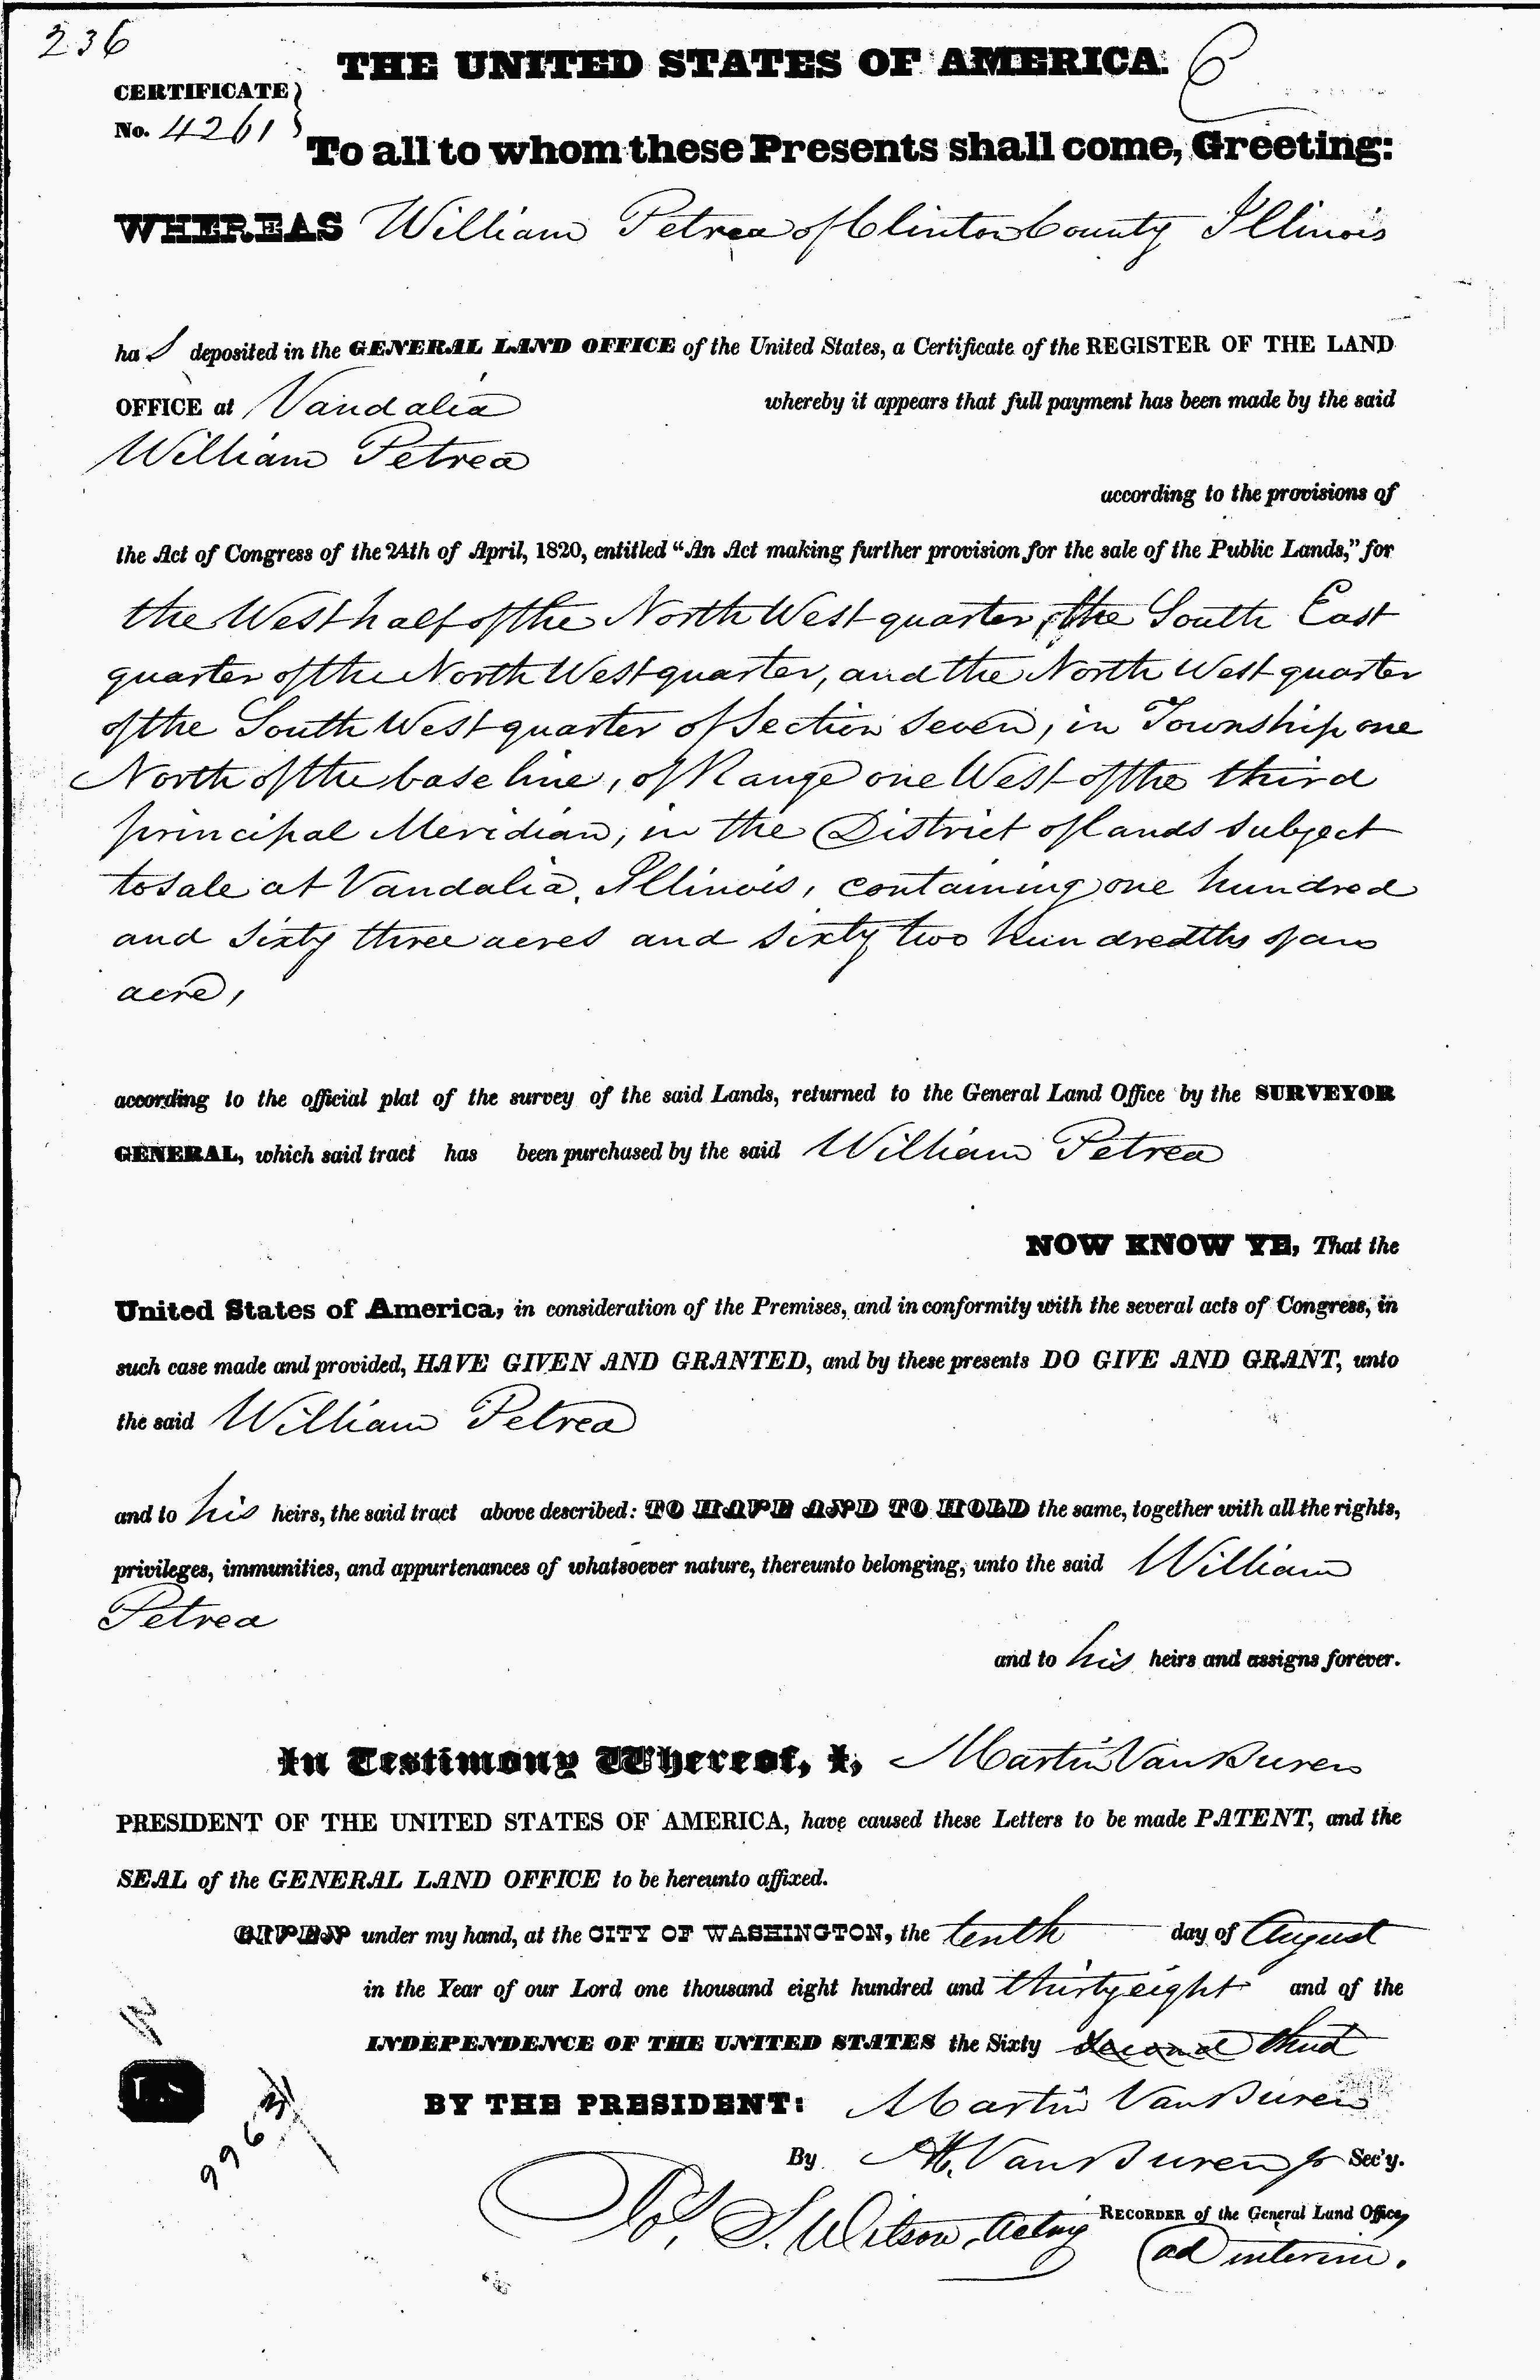 236
THE UNITED STATES OF AMERICA.
CERTIFICATE
No. 4261
To all to whom these Presents shall come, Greeting:
WHEREAS William Petrea of Clinton County Illinois
has deposited in the GENERAL LAND OFFICE of the United States, a Certificate of the REGISTER OF THE LAND
OFFICE at Vandalia whereby it appears that full payment has been made by the said
William Petrea
according to the provisions of
the Act of Congress of the 24th of April, 1820, entitled “An Act making further provision for the sale of the Public Lands,” for
the West half of the North West quarter, the South East
quarter of the North West quarter, and the North West quarter
of the South West quarter of Section Seven, in Township one
North of the base line, of Range one West of the third
principal Meridian, in the District of lands subject
to sale at Vandalia, Illinois, containing one hundred
and sixty three acres and sixty two hundredths of an
acre,
according to the official plat of the survey of the said Lands, returned to the General Land Office by the SURVEYOR
GENERAL, which said tract has been purchased by the said William Petrea
NOW KNOW YE, That the
United States of America, in consideration of the Premises, and in conformity with the several acts of Congress, in
such case made and provided, HAVE GIVEN AND GRANTED, and by these presents DO GIVE AND GRANT, unto
the said William Petrea
and to his heirs, the said tract above described: TO HAVE AND TO HOLD the same, together with all the rights,
privileges, immunities, and appurtenances of whatsoever nature, thereunto belonging, unto the said William
Petrea
and to his heirs and assigns forever.
In Testimony Whereof, I, Martin Van Buren
PRESIDENT OF THE UNITED STATES OF AMERICA, have caused these Letters to be made PATENT, and the
SEAL of the GENERAL LAND OFFICE to be hereunto affixed.
GIVEN under my hand, at the CITY OF WASHINGTON, the tenth day of August
in the Year of our Lord one thousand eight hundred and thirty eight and of the
INDEPENDENCE OF THE UNITED STATES the Sixty second third
BY THE PRESIDENT: Martin Van Buren
By M. Van Buren Jr Sec'y.
Jos. S. Wilson, Acting RECORDER of the General Land Office,
ad interim.